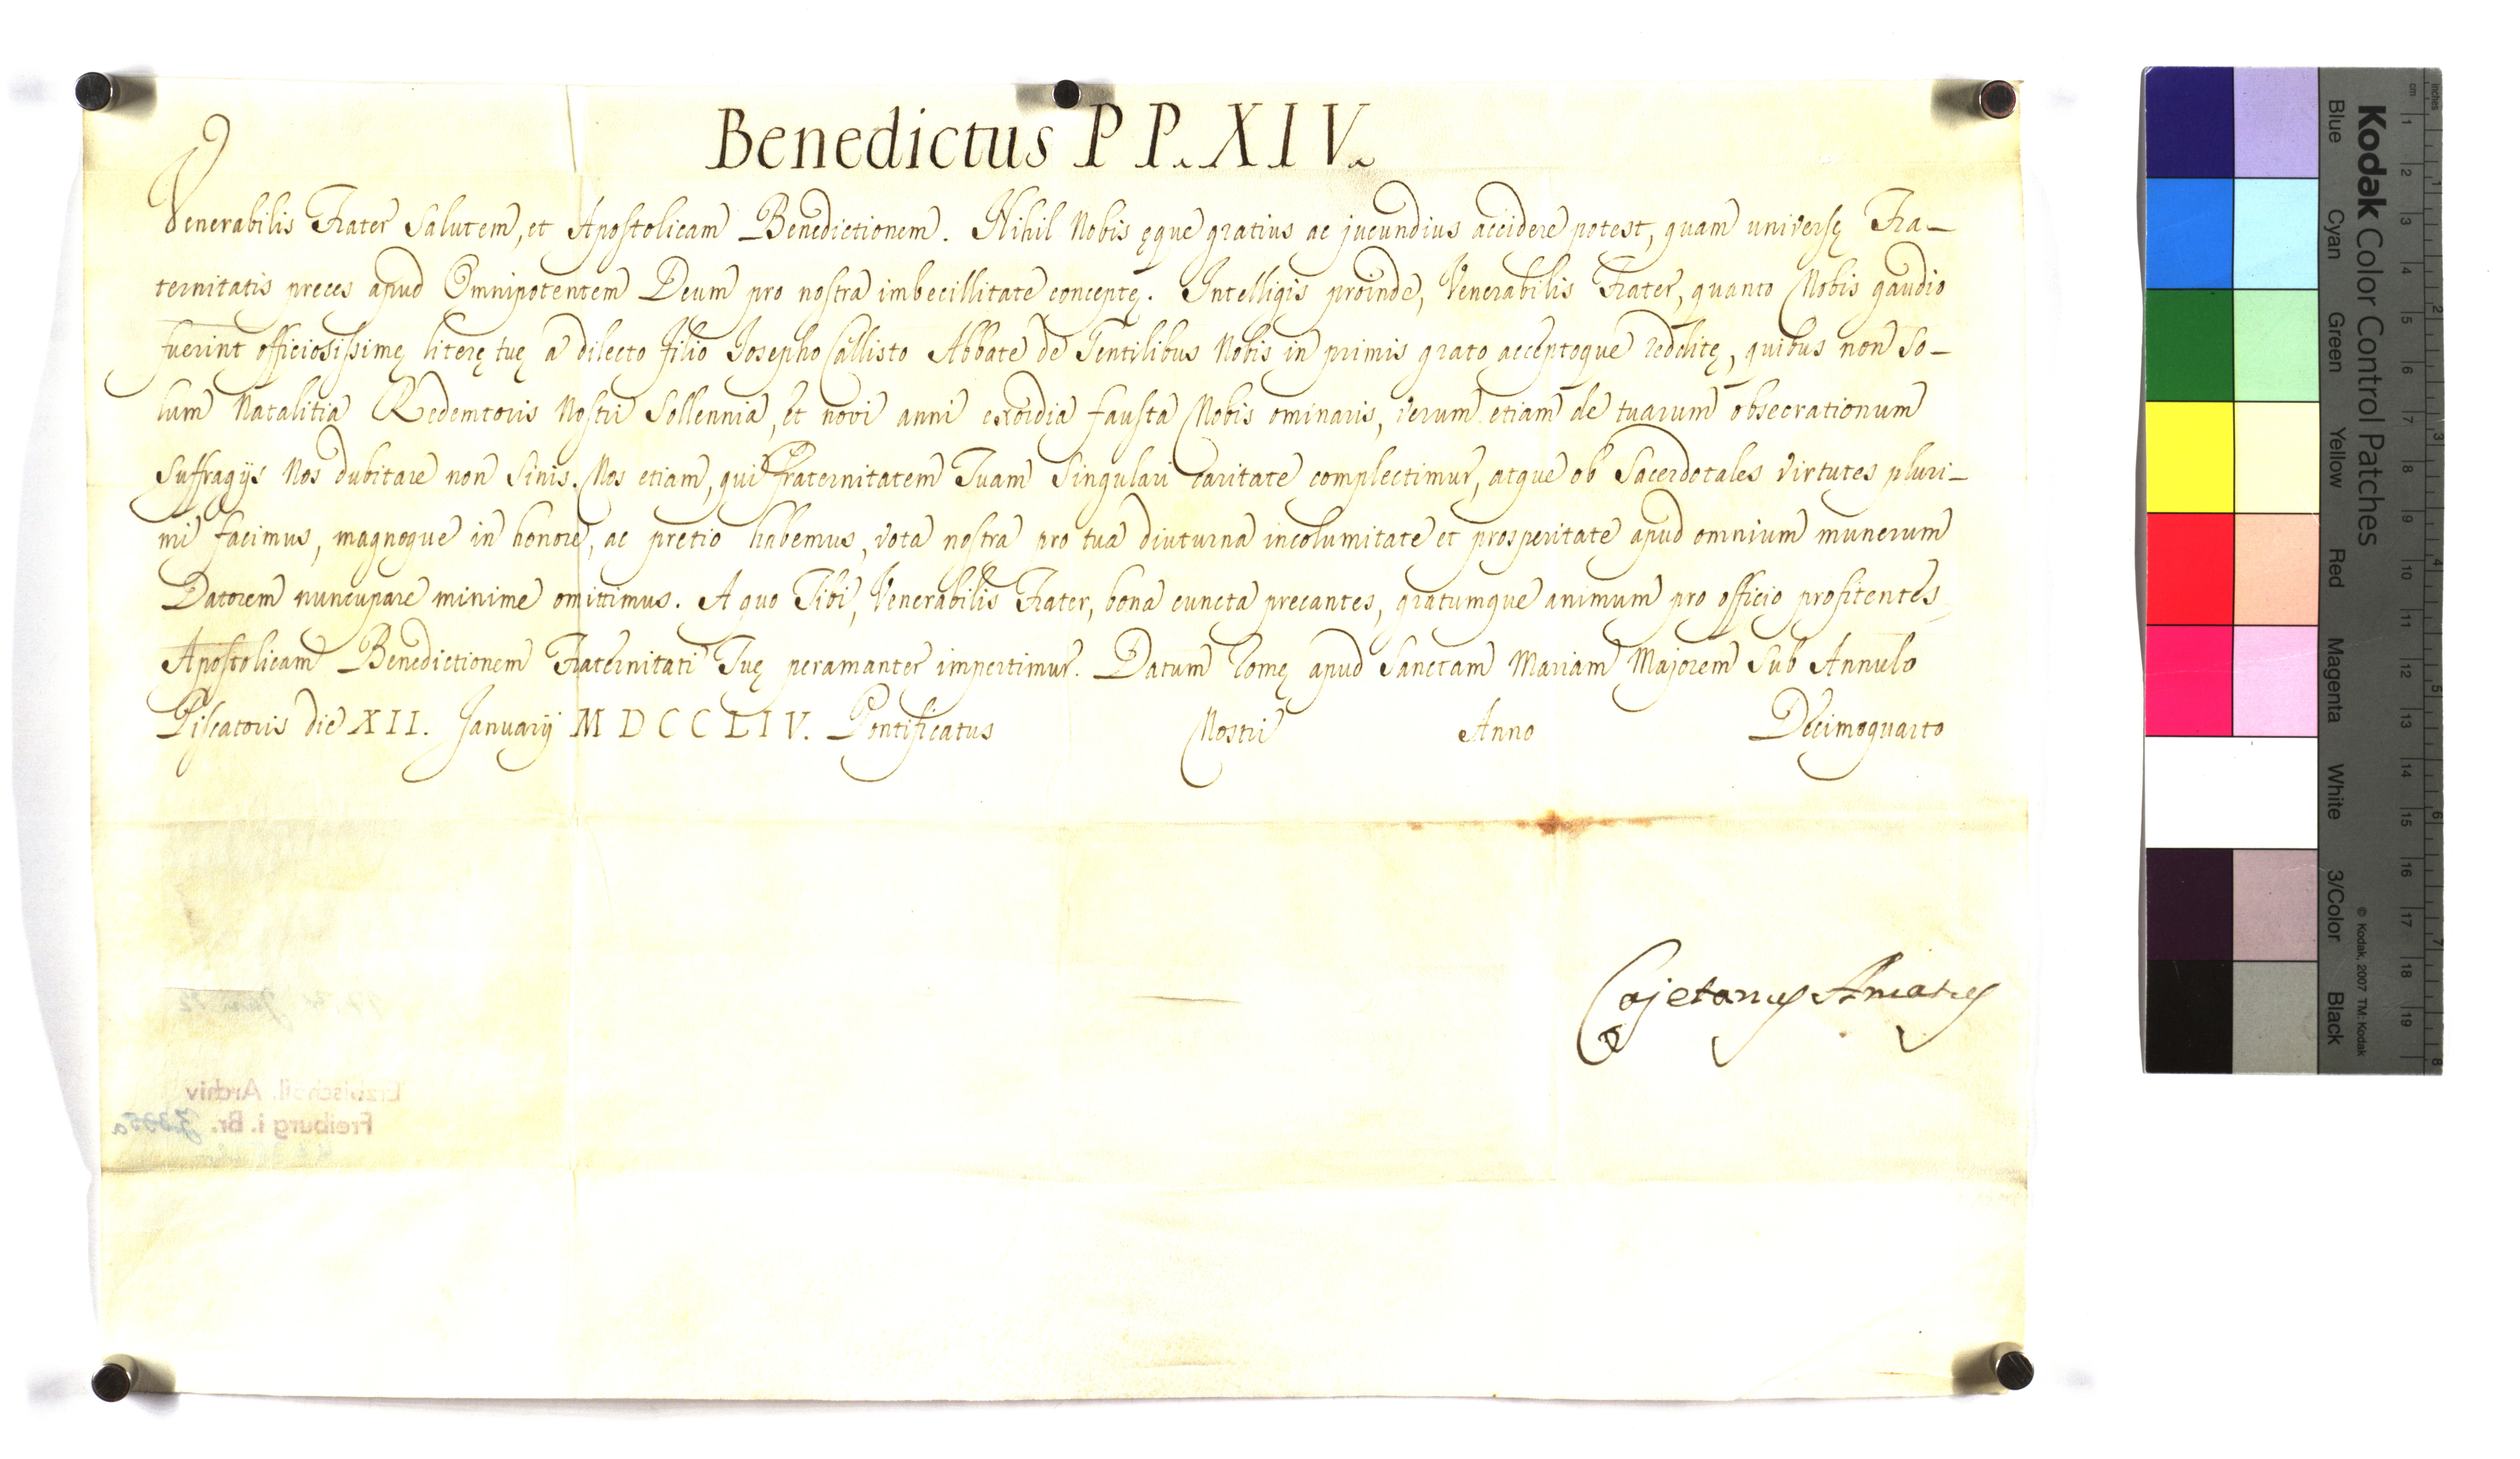 Benedictus P P. X I V.
Venerabilis Frater Salutem, et Apostolicam Benedictionem. Nihil Nobis ęque gratius ac jucundius accidere potest, quam universę Fra-
ternitatis preces apud Omnipotentem Deum pro nostra imbecillitate conceptę. Intelligis proinde, Venerabilis Frater, quanto Nobis gaudio
fuerint officiosissimę literę tuę a dilecto filio Josepho Callisto Abbate de Gentilibus Nobis in primis grato acceptoque redditę, quibus non So-
lum Natalitia Redemtoris Nostri Sollennia, et novi anni exordia fausta Nobis ominaris, verum etiam de tuarum obsecrationum
Suffragijs Nos dubitare non Sinis. Nos etiam, qui Fraternitatem Tuam Singulari caritate complectimur, atque ob Sacerdotales virtutes pluri-
mi facimus, magnoque in honore, ac pretio habemus, vota nostra pro tua diuturna incolumitate et prosperitate apud omnium munerum
Datorem nuncupare minime omittimus. A quo Tibi, Venerabilis Frater, bona cuncta precantes, gratumque animum pro officio profitentes
Apostolicam Benedictionem Fraternitati Tuę peramanter impertimur. Datum Romę apud Sanctam Mariam Majorem Sub Annulo
Piscatoris die XII. Januarij M D C C L I V. Pontificatus Nostri Anno Decimoquarto
Cajetanus Amatus
Erzbischöfl. Archiv
Freiburg i. Br.
Kodak Color Control Patches
Blue Cyan Green Yellow Red Magenta White 3/Color Black
© Kodak, 2007 TM: Kodak
cm 1 2 3 4 5 6 7 8 9 10 11 12 13 14 15 16 17 18 19
inches 1 2 3 4 5 6 7 8